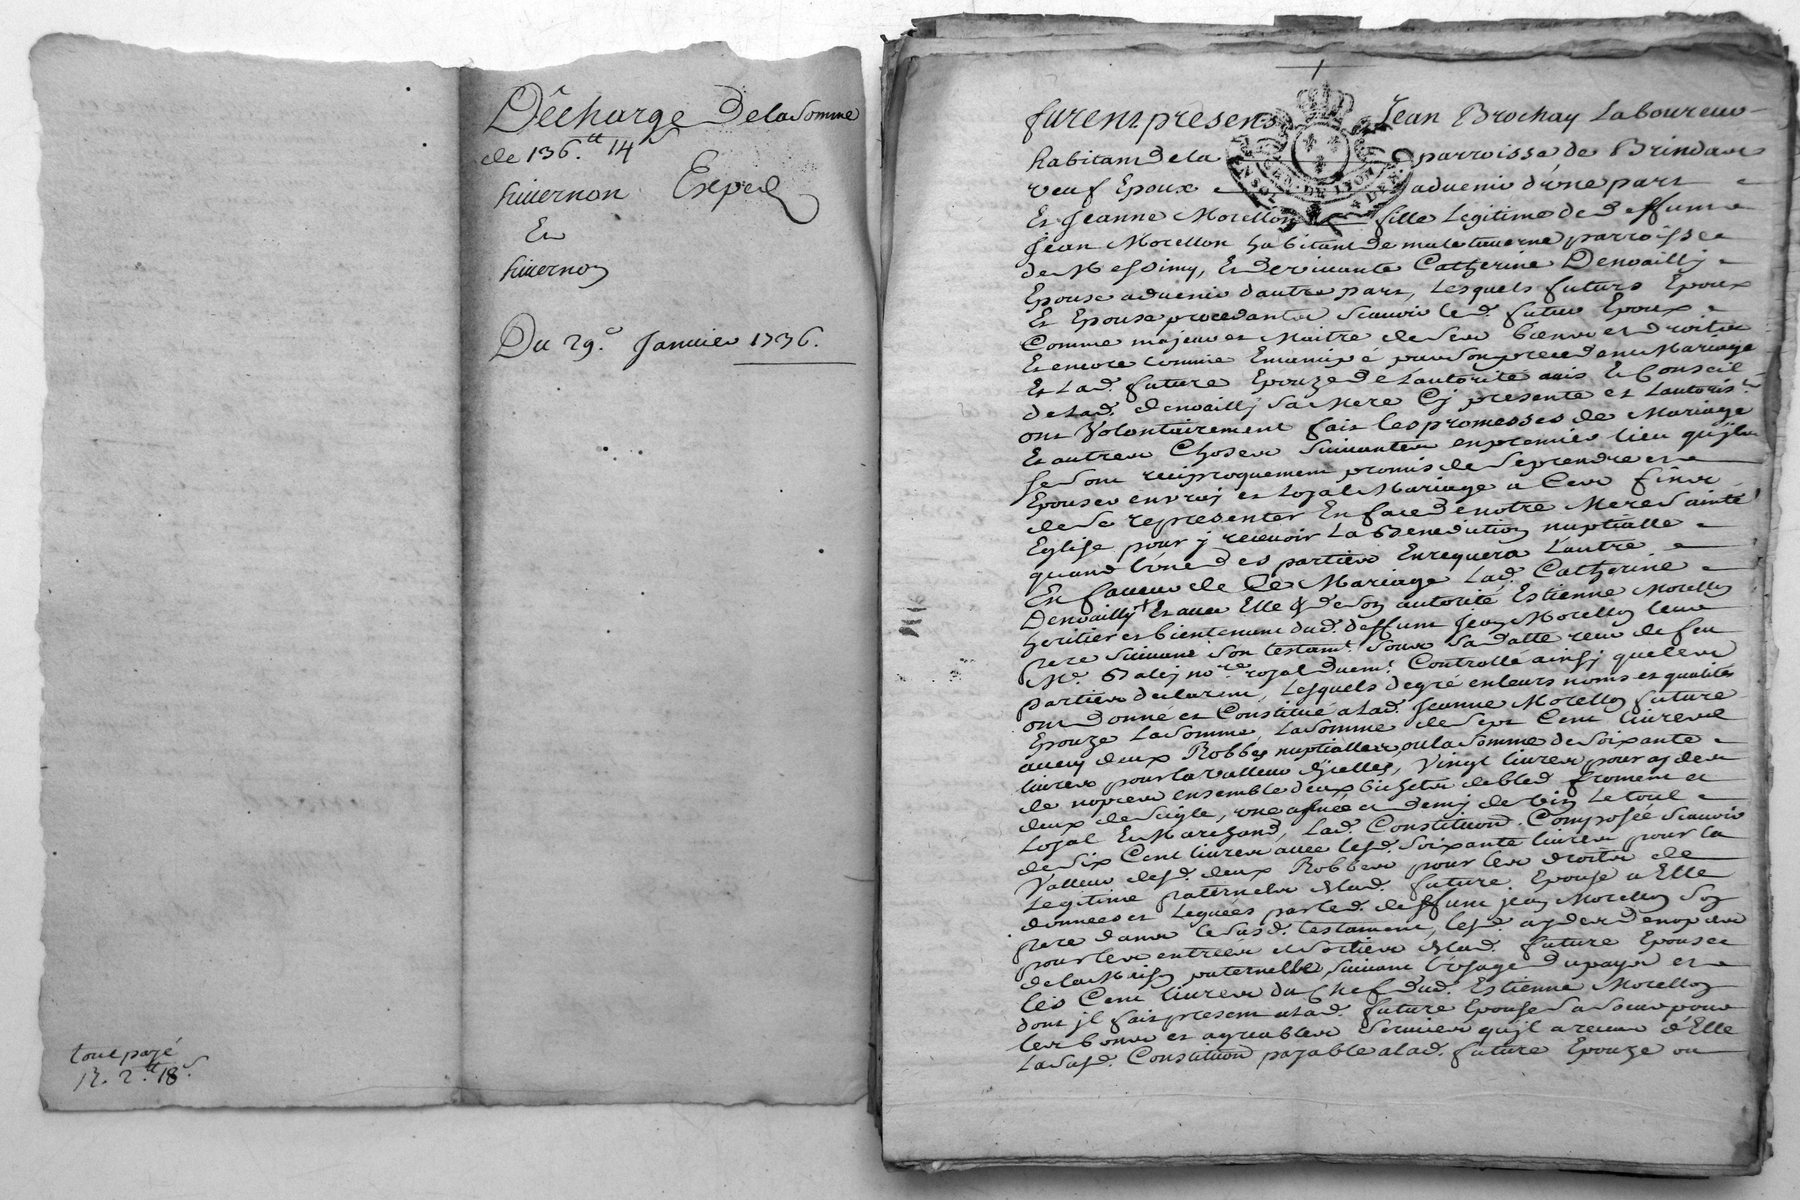 Dêcharge De la Somme
de 136.tt 14s
hiuernon Exped
Et
hiuernon
Du 29.e Januier 1736.
tout payé
2.tt 18s
furent presens Jean Brochay Laboureur
habitant de la parroisse de Brindas
veuf Epoux aduenir d'vne part
Et Jeanne Morellon fille Legitime de deffunt
Jean Morellon habitant de malataverne parroisse
de Messimy, Et de viuante Catherine Denoailly
Epouse aduenir d'autre part, Lesquels futurs Epoux
Et Epouse procedants sçauoir le d. futur Epoux
Comme majeur et Maitre de ses biens et droits
Et encore comme Emancipé par son precedent Mariage
Et Lad. future Epouze de L'autorité auis Et Conseil
de Lad. denoailly sa Mere Cy presente et L'autoris.t
ont Volontairement fait les promesses de Mariage
Et autres Choses suiuantes en premier lieu qu'ils
se sont reciproquement promis de se prendre et
Epouser en vray et Loyal Mariage a Ces fins
de se representer En face de notre Mere Sainte
Eglise pour y receuoir La Benediction nuptialle
quand L'vne des parties En requera L'autre
En faueur de Ce Mariage Lad. Catherine
Denoailly Et auec Elle & de son autorité Estienne Morellon
heritier et bientenant dud. deffunt Jean Morellon leur
pere suiuant son testam.t sous sa datte receu de feu
Me. Baley no.re royal duem.t Controllé ainsy que les
parties declarent, Lesquels de gré en leurs noms et qualités
ont donné et Constitué a Lad. Jeanne Morellon future
Epouze La somme, La somme de sept Cent liures
auec deux Robbes nuptialles, ou la somme de soixante
liures pour la valleur d'jcelles, Vingt liures pour ayder
de nopces ensemble deux bichets de bled froment et
deux de seigle, vne asnée et demy de vin Le tout
Loyal Et Marchand, Lad. Constitution Composée sçauoir
de six Cent liures auec lesd. soixante liures pour la
Valleur desd. deux Robbes pour les droits de
Legitime paternels de lad. future Epouse a Elle
donnees et Leguées par led. deffunt jean Morellon son
pere dans le susd. testament, lesd. ayder de nopces
pour les entrées et sorties de lad. future Epouse
de la Maison paternelle suiuant L'vsage du pays et
les Cent liures du Chef dud. Estienne Morellon
dont jl fait present a Lad. future Epouse sa soeur pour
les bons et agreables seruices qu'jl a receus d'Elle
La susd. Constitution payable a lad. future Epouze ou